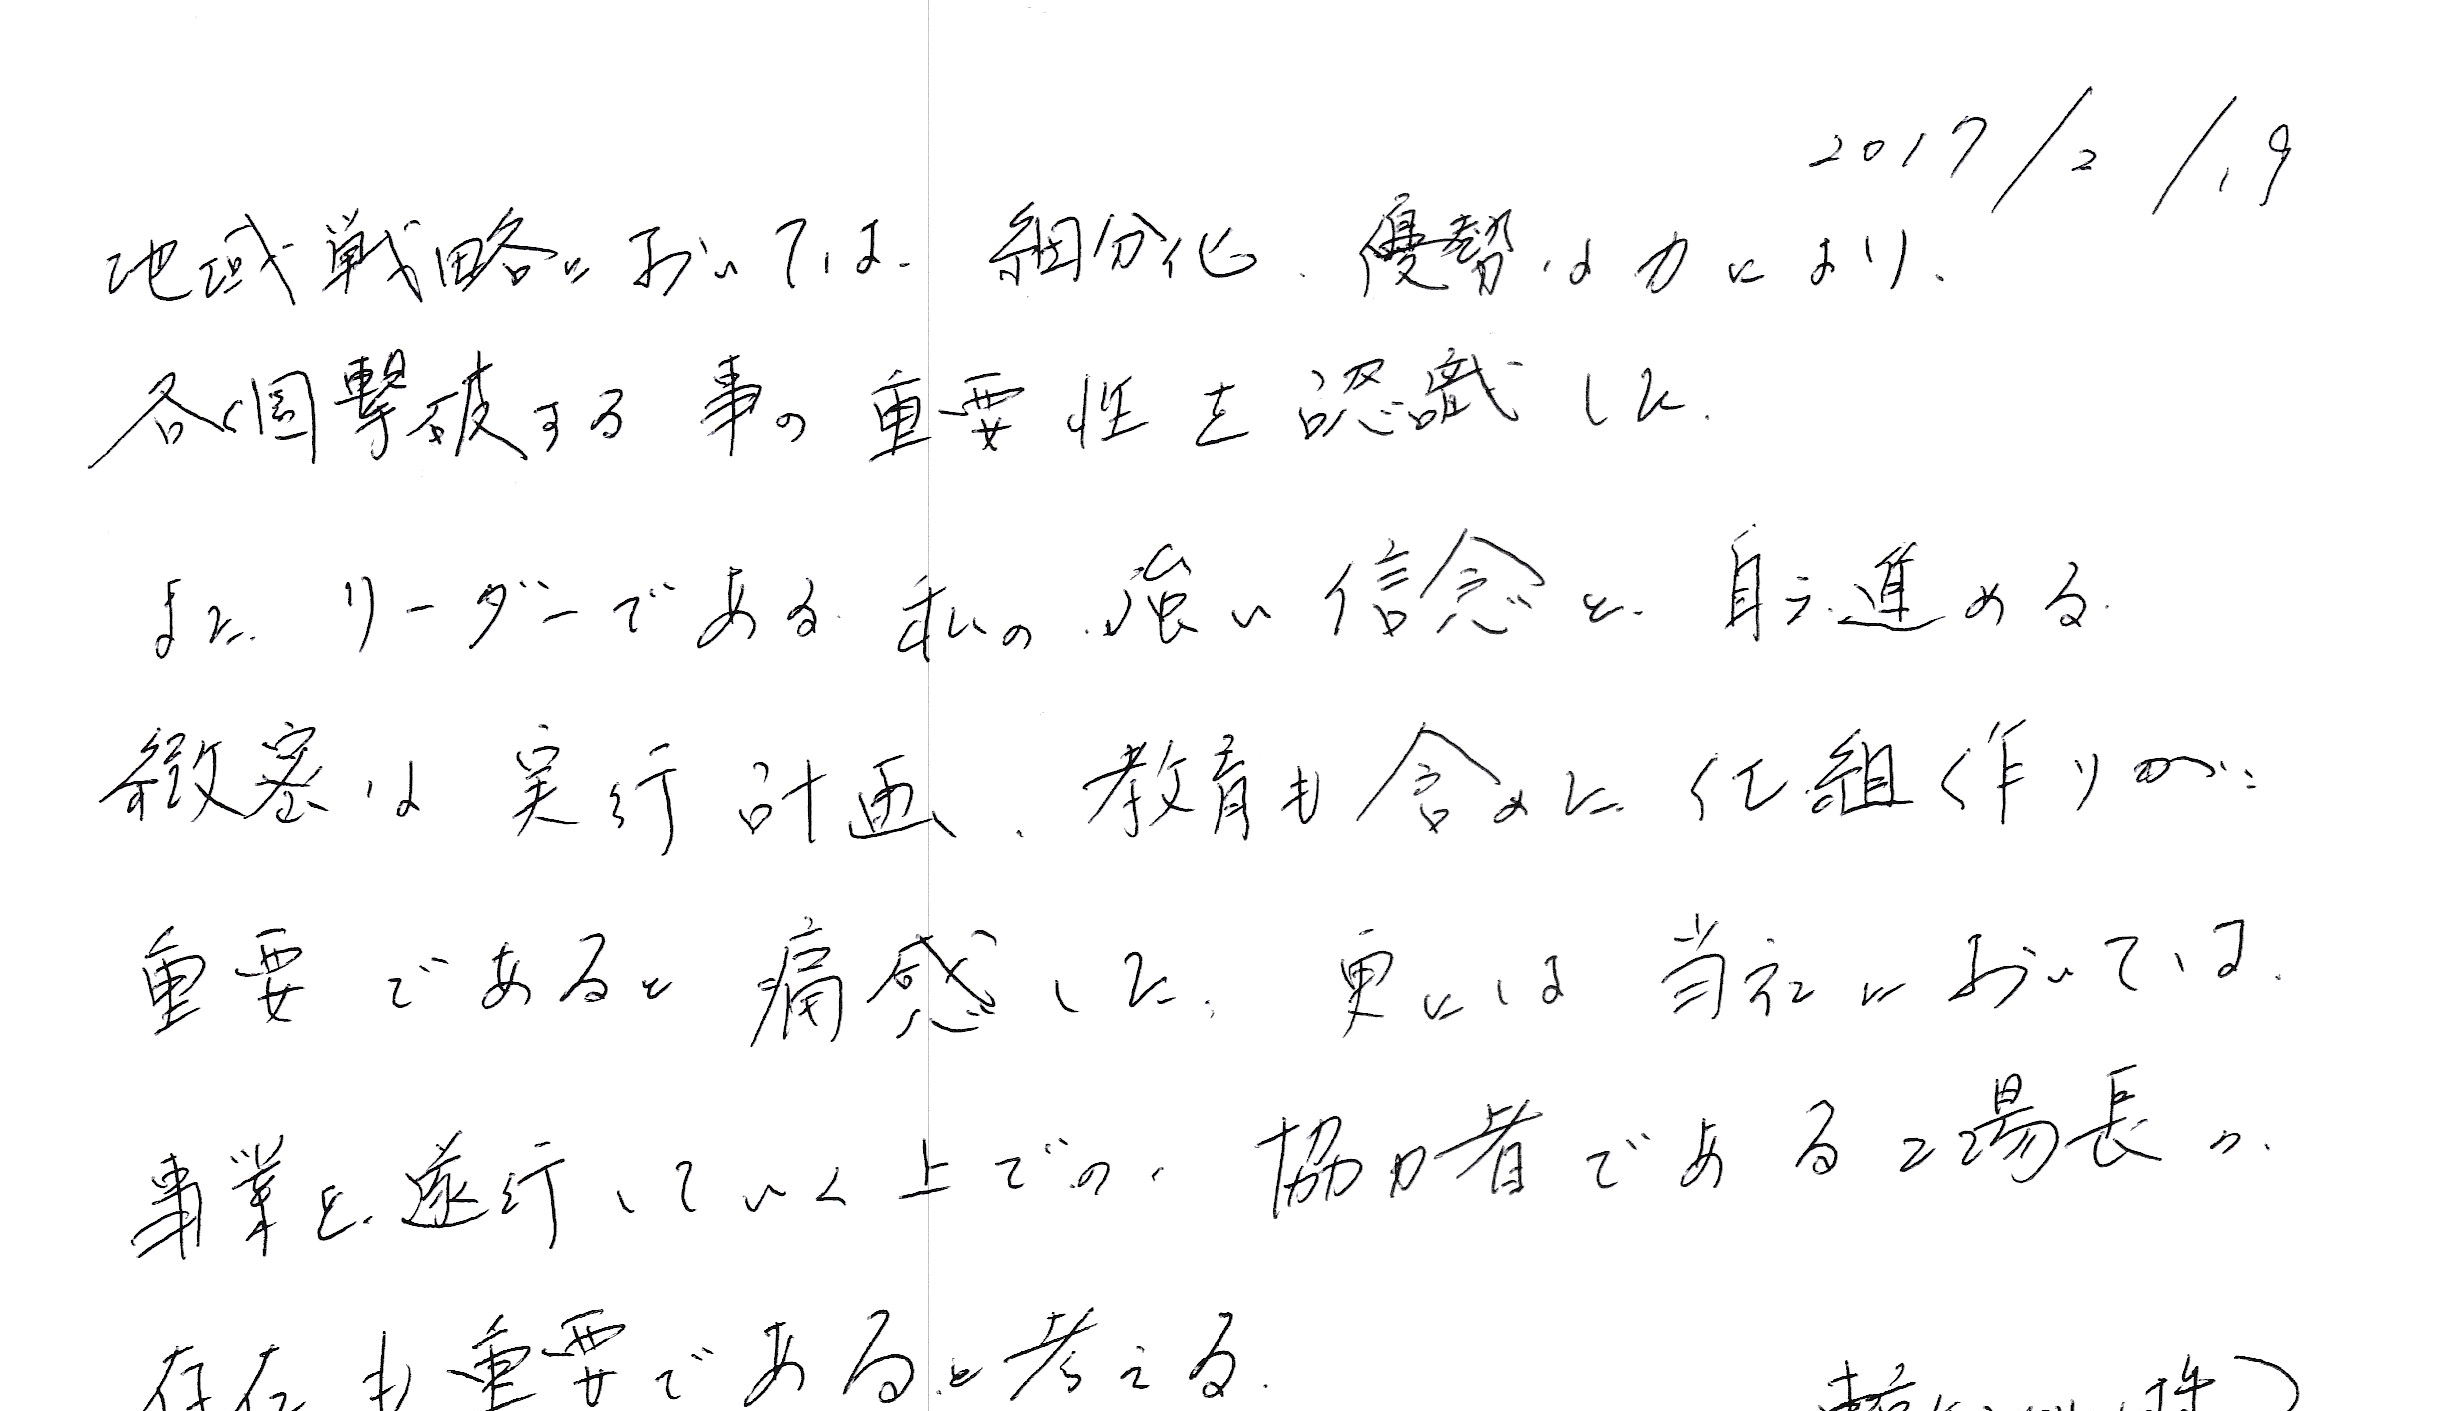 2017/2/19
地域戦略においては、細分化、優勢な力により、
各個撃破する事の重要性を認識した。
また、リーダーである私の強い信念と、自ら進める
緻密な実行計画、教育も含めた仕組作りが
重要であると痛感した。更には当社においては、
事業を遂行していく上での、協力者である工場長の
存在も重要であると考える。